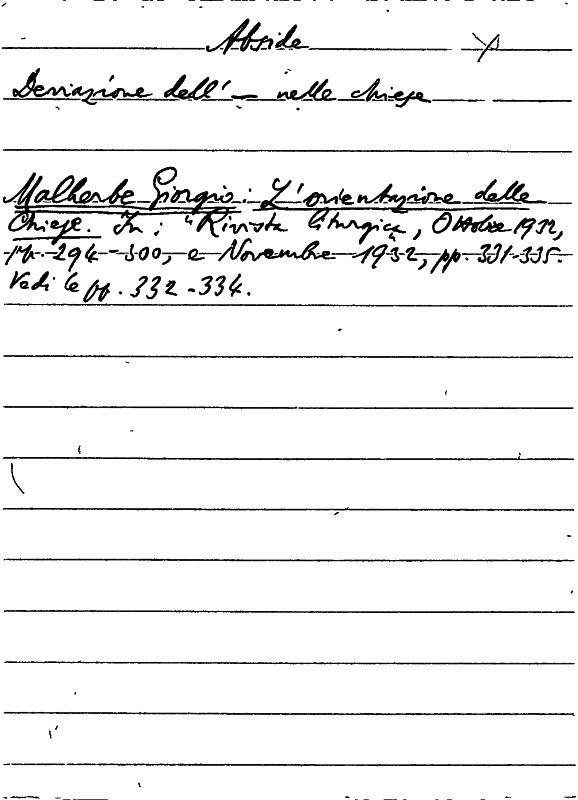 Abside
Deviazione dell' — nelle chiese
Malherbe Giorgio: L'orientazione delle
Chiese. In: "Rivista liturgica", Ottobre 1932,
pp. 294-300, e Novembre 1932, pp. 331-335.
Vedi le pp. 332-334.